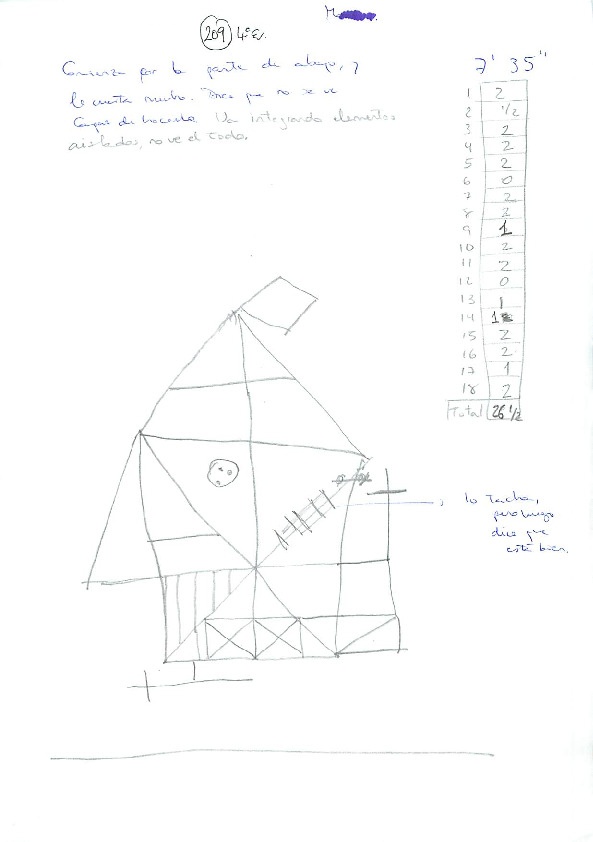 M
209 4ºE.
Comienza por la parte de abajo, y
le cuesta mucho. Dice que no se ve
capaz de hacerlo. Va integrando elementos
aislados, no ve el todo.
7' 35''
1 2
2 1/2
3 2
4 2
5 2
6 0
7 2
8 2
9 1
10 2
11 2
12 0
13 1
14 1
15 2
16 2
17 1
18 2
Total 26 1/2
lo tacha,
pero luego
dice que
está bien.